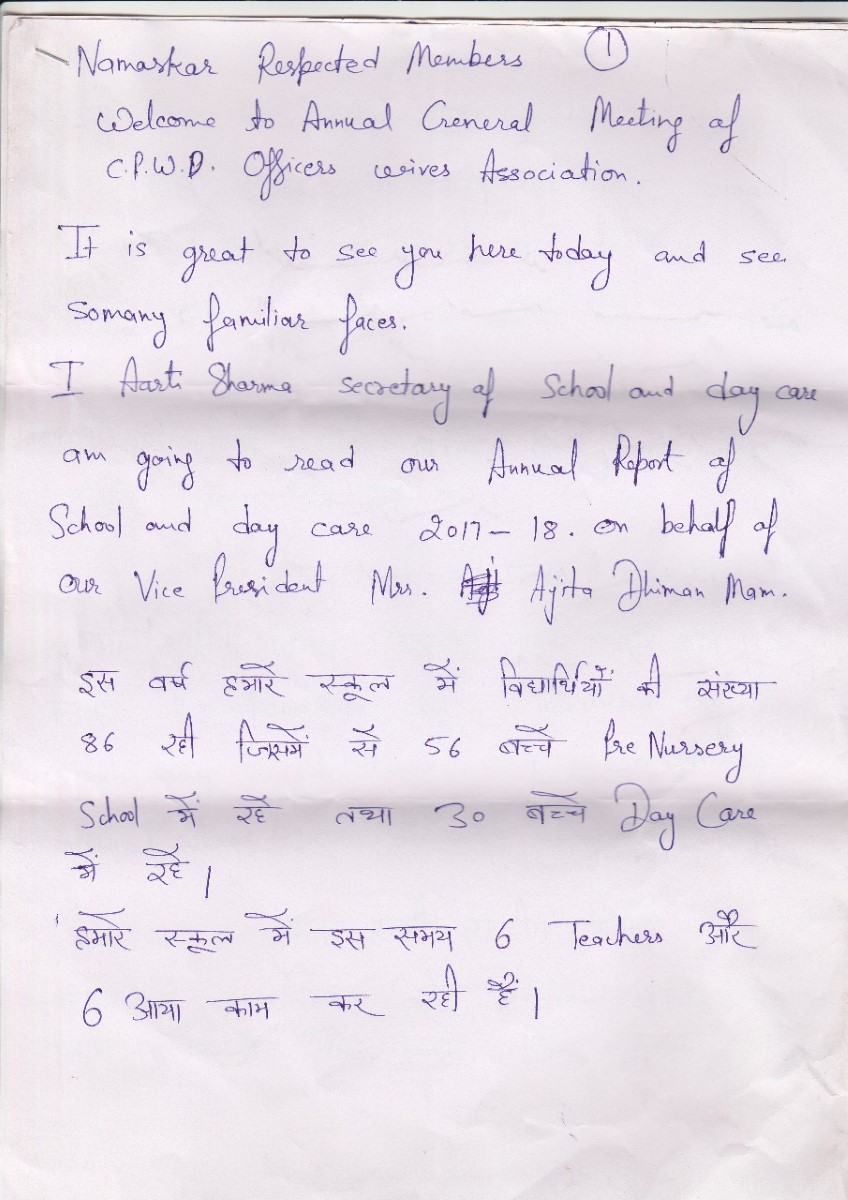 Namaskar Respected Members ①
Welcome to Annual General Meeting of
C.P.W.D. Officers wives Association.
It is great to see you here today and see
somany familiar faces.
I Aarti Sharma secretary of School and day care
am going to read our Annual Report of
School and day care 2017-18. on behalf of
our Vice President Mrs. Ajita Dhiman Mam.
इस वर्ष हमारे स्कूल में विद्यार्थियों की संख्या
86 रही जिसमें से 56 बच्चे Pre Nursery
School में रहे तथा 30 बच्चे Day Care
में रहे।
हमारे स्कूल में इस समय 6 Teachers और
6 आया काम कर रही हैं।